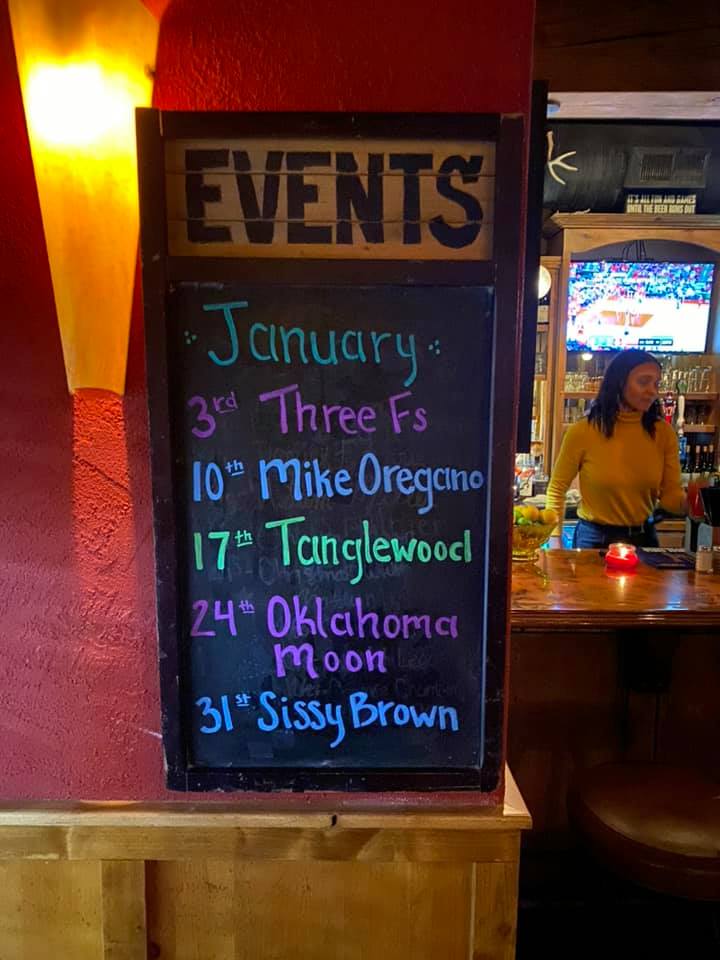 EVENTS
IT'S ALL FUN AND GAMES
UNTIL THE BEER RUNS OUT
January
3rd Three Fs
10th Mike Oregano
17th Tanglewood
24th Oklahoma
Moon
31st Sissy Brown